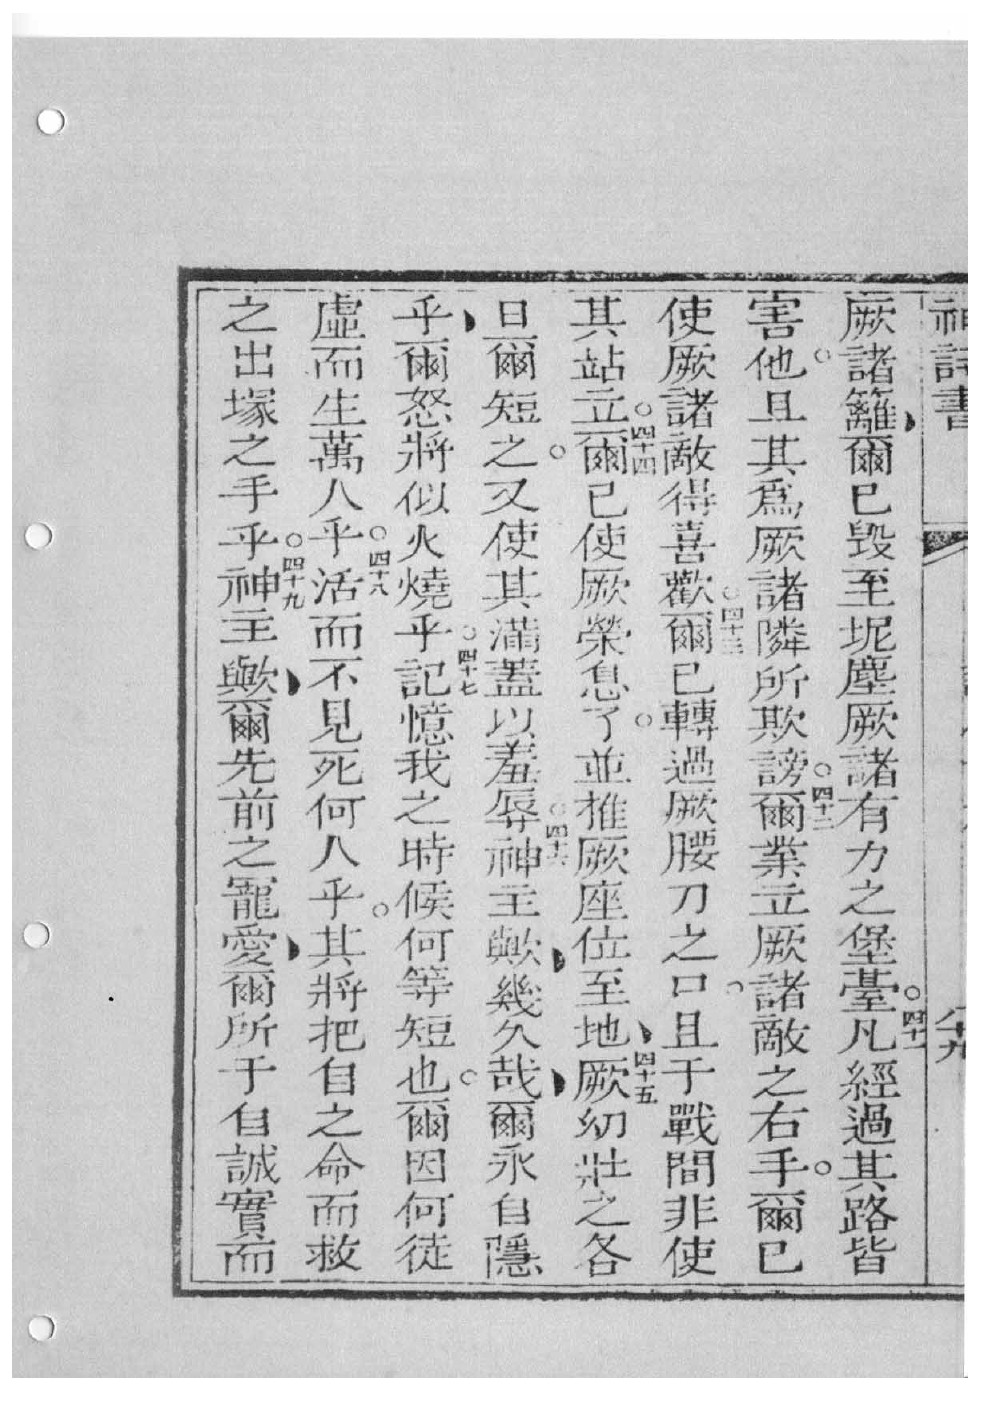 神詩書
八十九
厥諸籬爾已毀至坭塵厥諸有力之堡臺○四十一凡經過其路皆
害他○且其為厥諸隣所欺謗○四十二爾業立厥諸敵之右手○爾已
使厥諸敵得喜歡○四十三爾已轉過厥腰刀之口○且于戰間非使
其站立○四十四爾已使厥榮息了○並推厥座位至地四十五厥幼壯之各
日爾短之○又使其滿蓋以羞辱○四十六神主歟幾久哉爾永自隱
乎爾怒將似火燒乎○四十七記憶我之時候何等短也○爾因何徒
虛而生萬人乎○四十八活而不見死何人乎○其將把自之命而救
之出塚之手乎○四十九神主歟爾先前之寵愛爾所于自誠實而